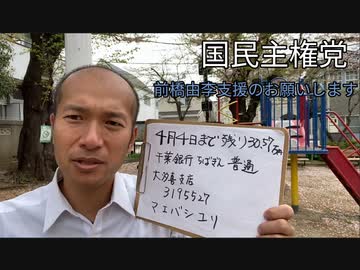 国民主権党
前橋由李支援のお願いします
4月4日まで残り30.57万
千葉銀行 ちばぎん 普通
大多喜支店
3195527
マエバシユリ